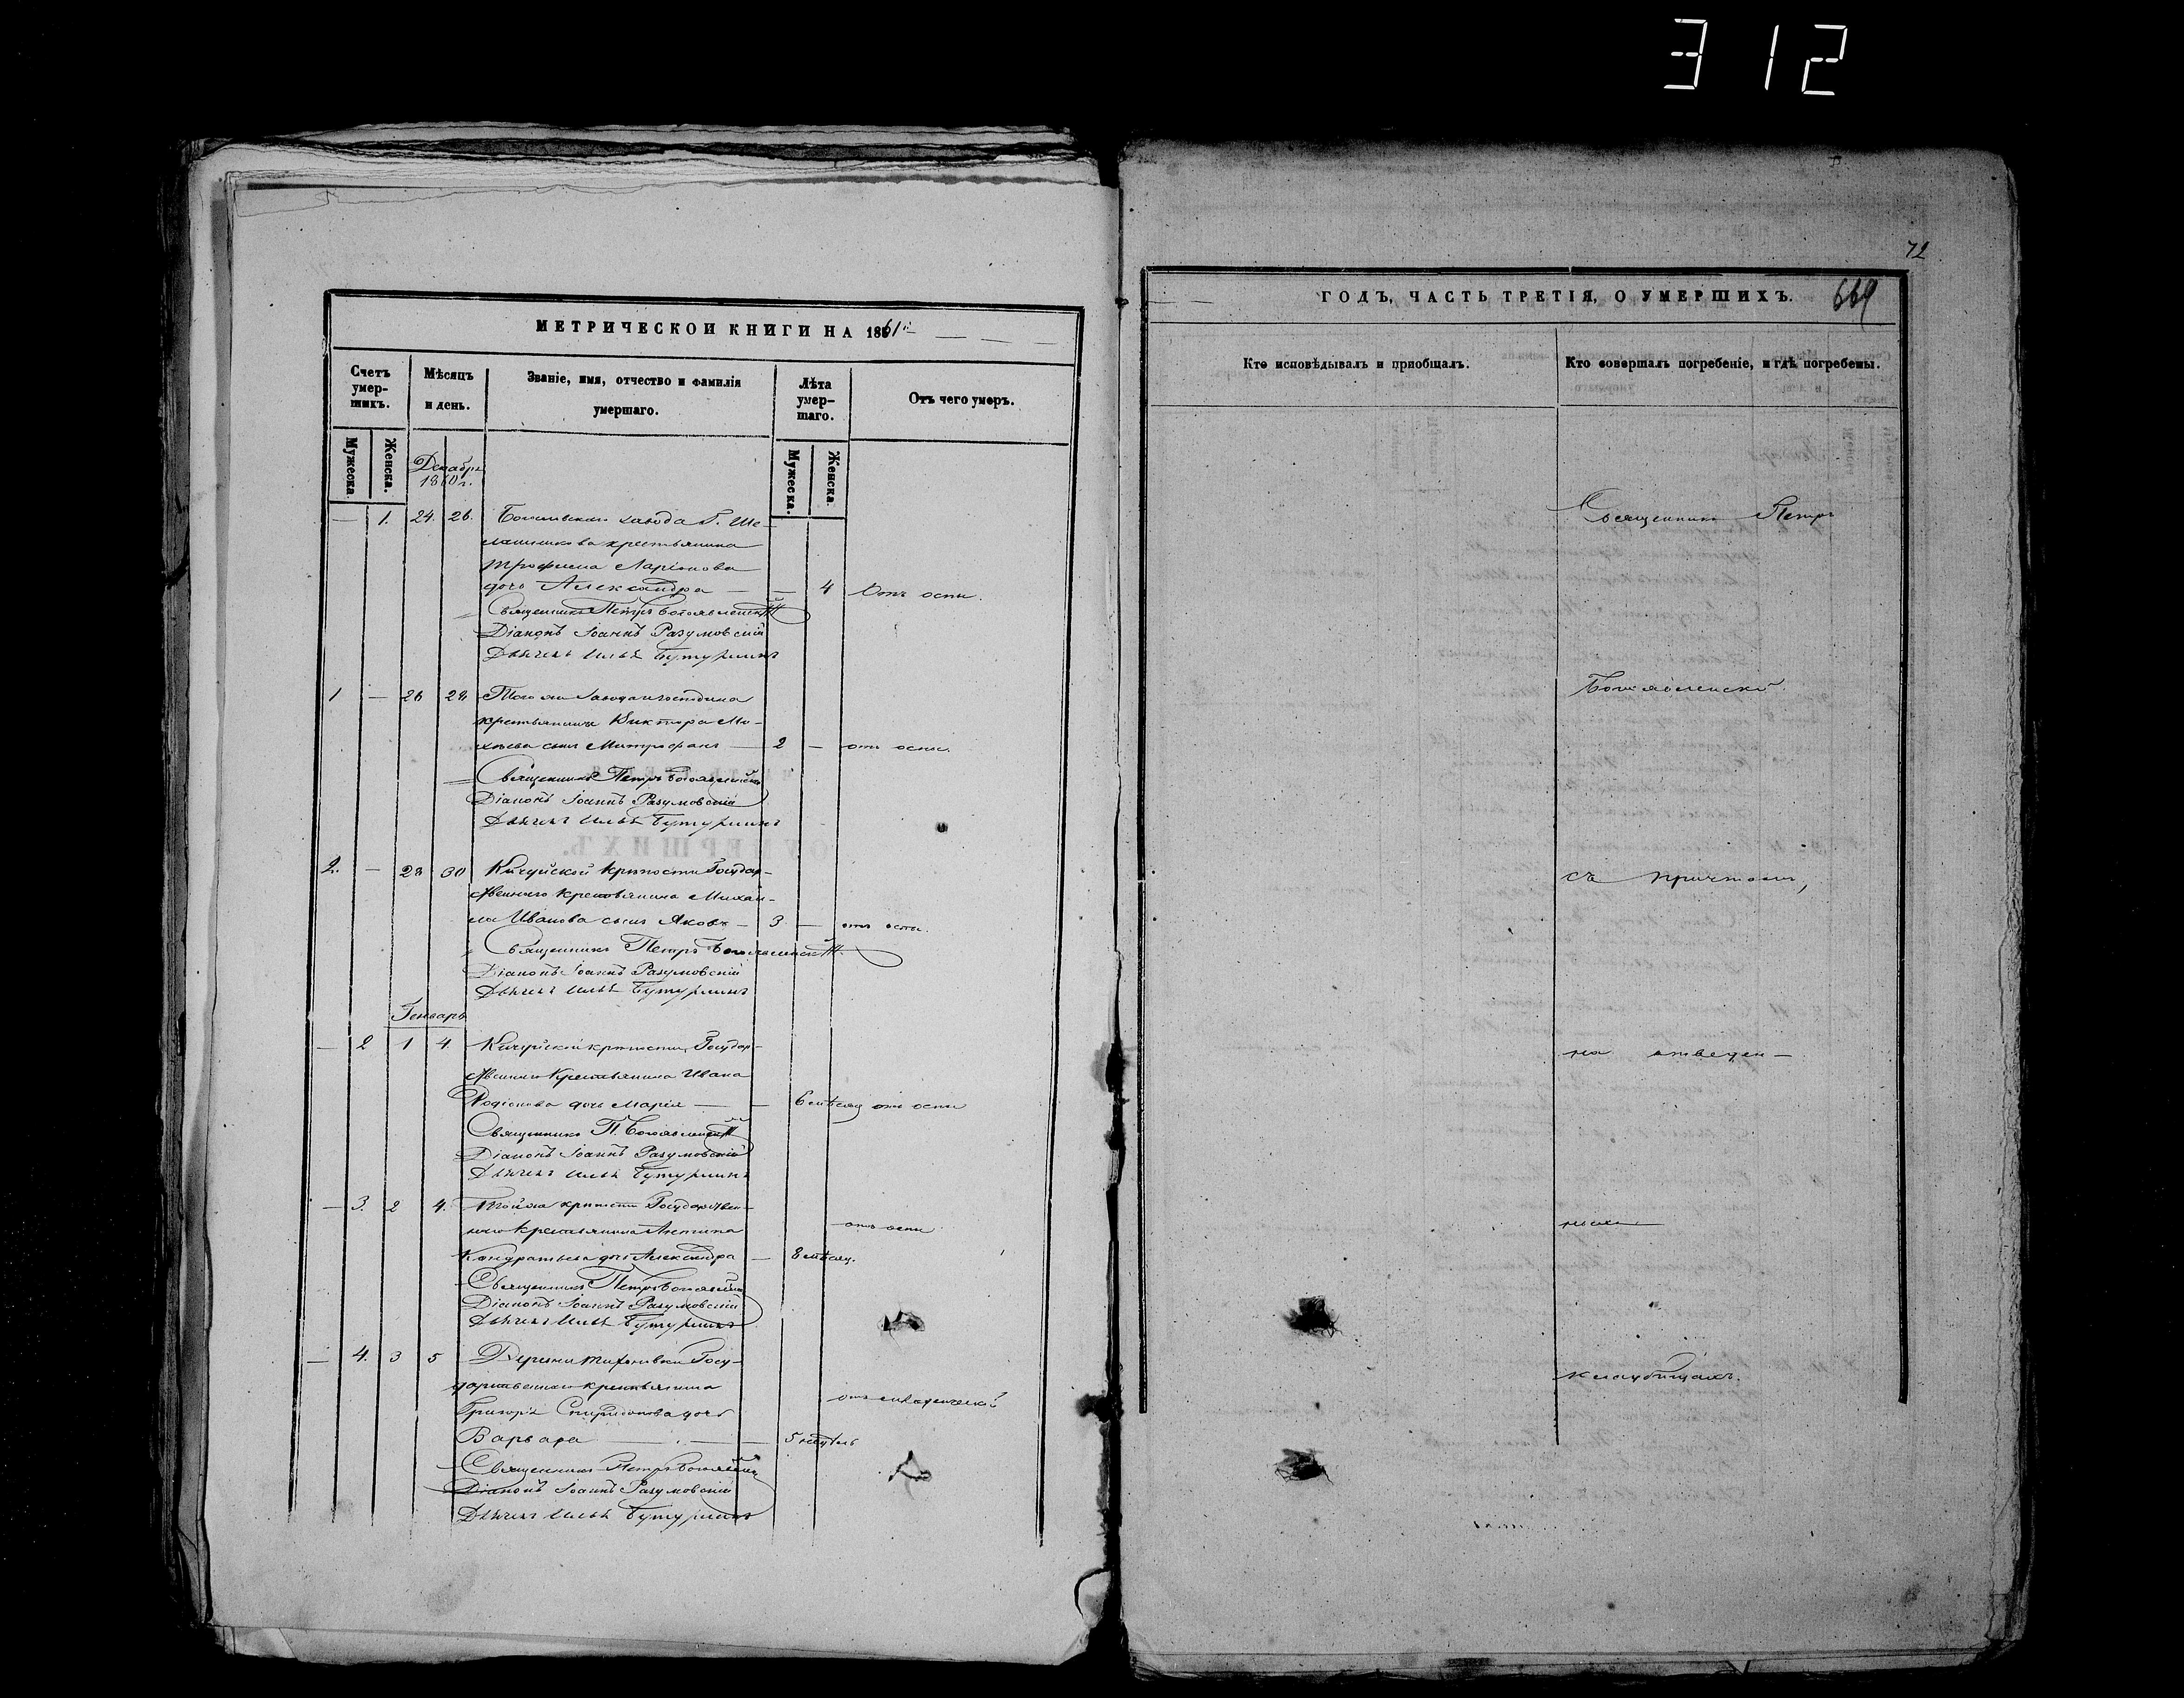 312
МЕТРИЧЕСКОЙ КНИГИ НА 1861й
Счетъ умер-шихъ.
Мѣсяцъ и день.
Званіе, имя, отчество и фамилія умершаго.
Лѣта умер-шаго.
Отъ чего умеръ.
Мужеска.
Женска.
Мужеска.
Женска.
Декабрь
1860 г.
— 1. 24. 26. завода Г. Ше-
крестьянина
Трофима Ларіонова
дочь Александра — — 4 Отъ оспы.
Священникъ Петръ Богоявленскій
Діаконъ Іоаннъ Разумовскій
Дьячекъ Илья Бутурлинъ
1 — 26 28 Того же завода и господина
крестьянина Виктора Ми-
хѣева сынъ Митрофанъ — 2 — отъ оспы.
Священникъ Петръ Богоявленскій
Діаконъ Іоаннъ Разумовскій
Дьячекъ Илья Бутурлинъ
2. — 28 30 Кичуйской крѣпости Государ-
ственнаго крестьянина Михаи-
ла Иванова сынъ Яковъ — 3 — отъ оспы.
Священникъ Петръ Богоявленскій
Діаконъ Іоаннъ Разумовскій
Дьячекъ Илья Бутурлинъ
Генварь
— 2 1 4 Кичуйской крѣпости Государ-
ственнаго крестьянина Ивана
Родіонова дочь Марія — — 6 мѣсяц отъ оспы
Священникъ П. Богоявленскій
Діаконъ Іоаннъ Разумовскій
Дьячекъ Илья Бутурлинъ
— 3. 2 4. Той же крѣпости Государствен-
наго крестьянина Антипа отъ оспы
Кондратьева дочь Александра — 8 мѣсяц.
Священникъ Петръ Богоявленскій
Діаконъ Іоаннъ Разумовскій
Дьячекъ Илья Бутурлинъ
— 4. 3 5 Деревни Госу-
дарственнаго крестьянина
Григорія Спиридонова дочь отъ младенческой
Варвара — — 5 недѣль
Священникъ Петръ Богоявленскій
Діаконъ Іоаннъ Разумовскій
Дьячекъ Илья Бутурлинъ
72
ГОДЪ, ЧАСТЬ ТРЕТІЯ, О УМЕРШИХЪ.
669
Кто исповѣдывалъ и пріобщалъ.
Кто совершалъ погребеніе, и гдѣ погребены.
Священникъ Петръ
Богоявленскій
съ причтомъ,
на отведен-
номъ
кладбищахъ.